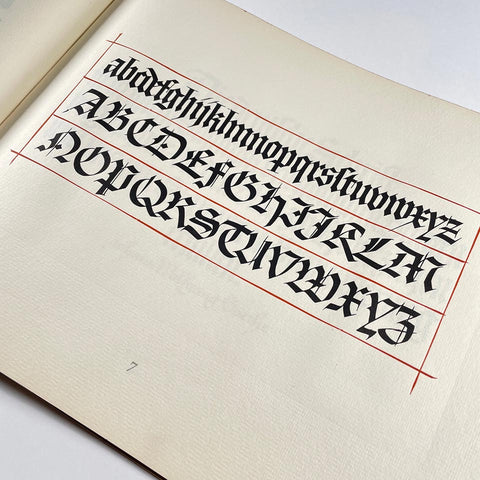 abcdefghijklmnopqrsſtuvwxyz
ABCDEFGHIJKLM
NOPQRSTUVWXYZ
7